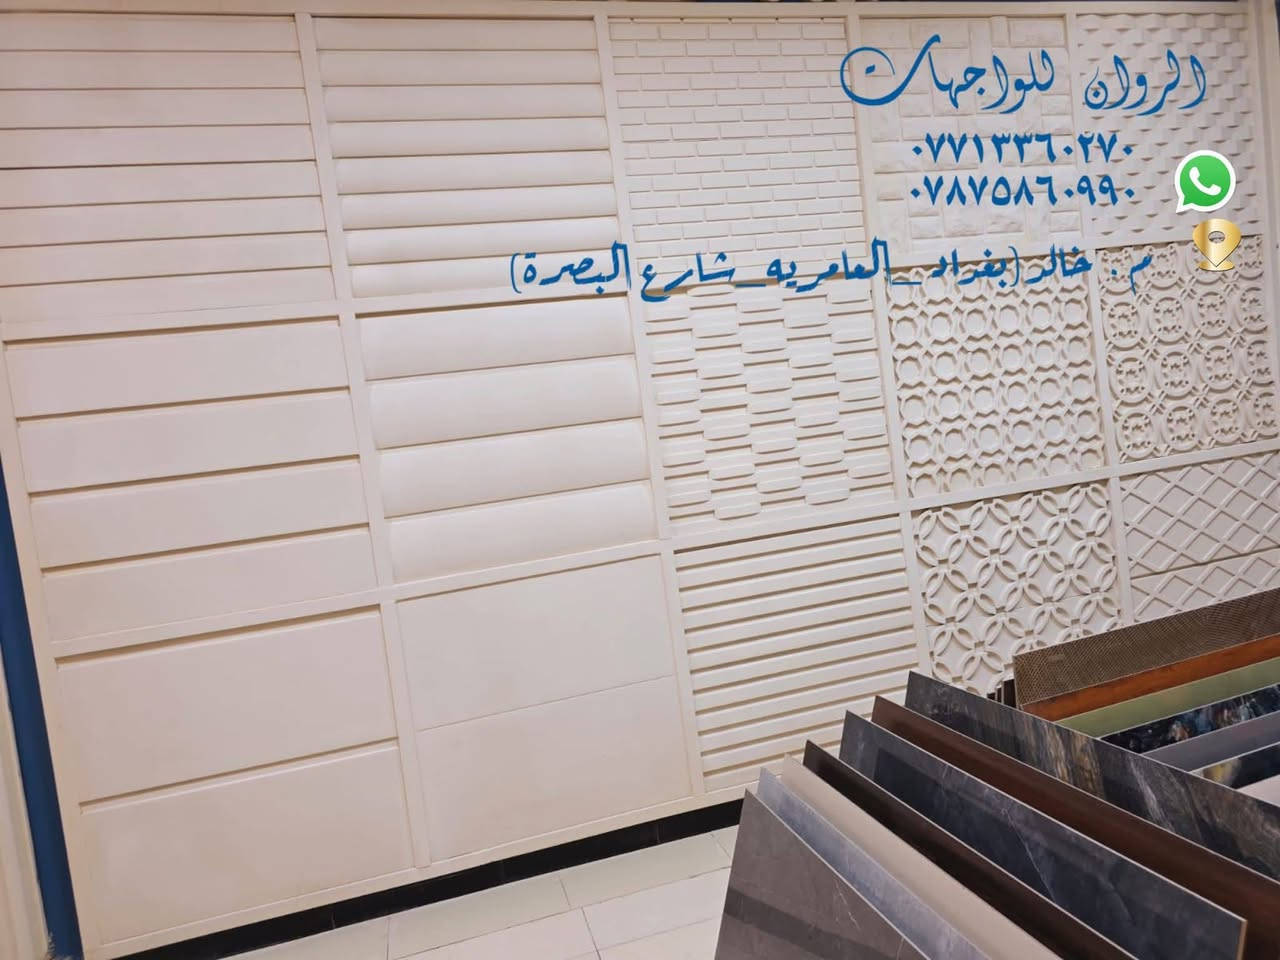 الروان للواجهات
٠٧٧١٣٣٦٠٢٧٠
٠٧٨٧٥٨٦٠٩٩٠
م. خالد (بغداد_العامريه_شارع البصرة)